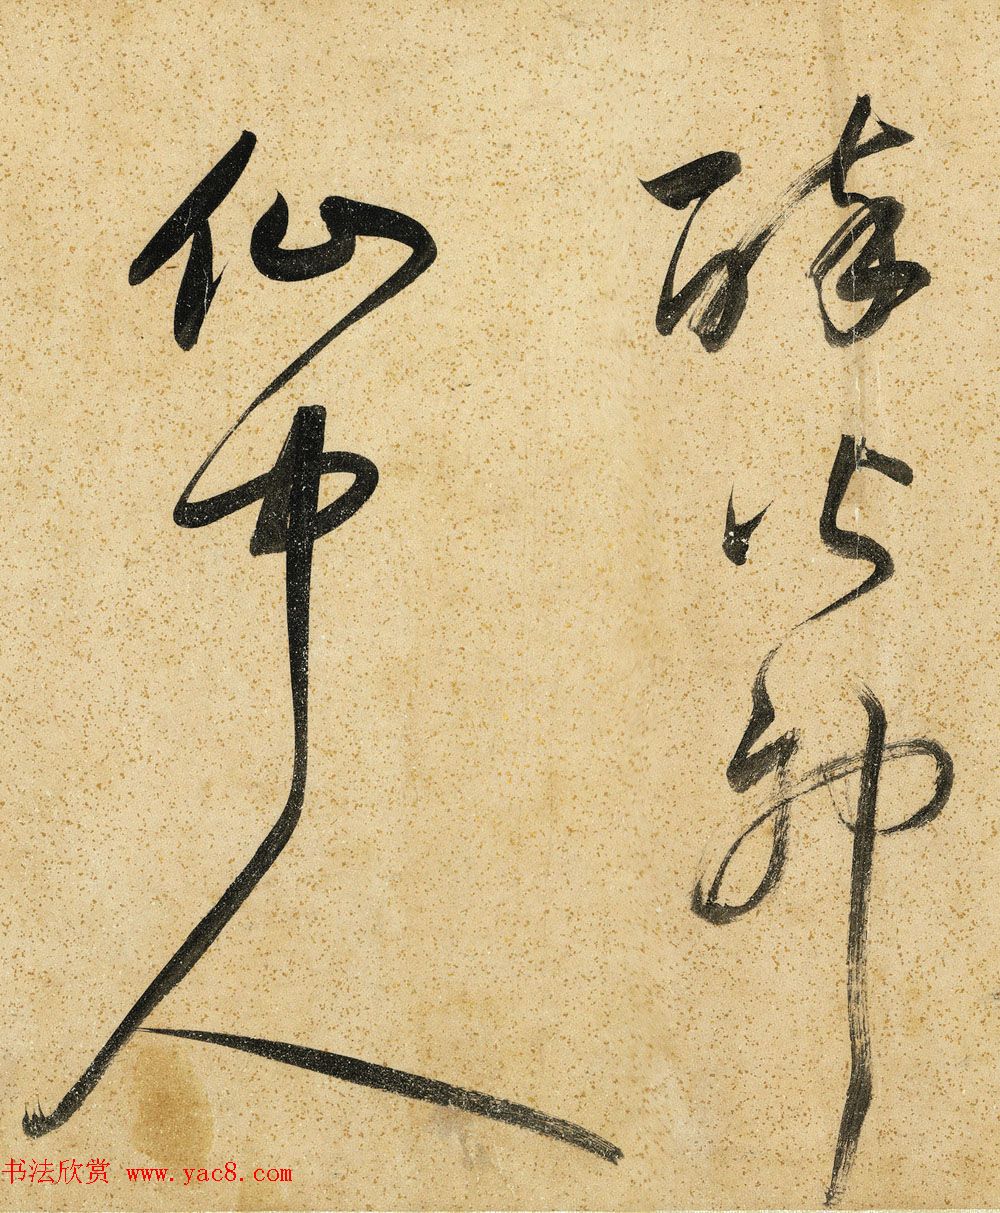 神
仙中人
书法欣赏 www.yac8.com